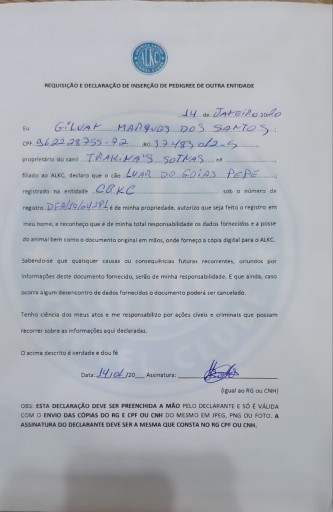 ALKC
REQUISIÇÃO E DECLARAÇÃO DE INSERÇÃO DE PEDIGREE DE OUTRA ENTIDADE
14 de JANEIRO 2020
Eu GILVAN MARQUES DOS SANTOS,
CPF 962228755-72 RG
proprietário do canil TRAKINA'S SOTNAS, nº
filiado ao ALKC, declaro que o cão LUAR DO GOIAS PEPE,
registrado na entidade CBKC sob o número de
registro é de minha propriedade, autorizo que seja feito o registro em
meu nome, e reconheço que é de minha total responsabilidade os dados fornecidos e a posse
do animal bem como o documento original em mãos, onde forneço a cópia digital para o ALKC.
Sabendo-se que quaisquer causas ou consequências futuras recorrentes, oriundos por
informações deste documento fornecido, serão de minha responsabilidade. E que ainda, caso
ocorra algum desencontro de dados fornecidos o documento poderá ser cancelado.
Tenho ciência dos meus atos e me responsabilizo por ações cíveis e criminais que possam
recorrer sobre as informações aqui declaradas.
O acima descrito é verdade e dou fé
Data: 14/01/20___ Assinatura:
(igual ao RG ou CNH)
OBS: ESTA DECLARAÇÃO DEVE SER PREENCHIDA A MÃO PELO DECLARANTE E SÓ É VÁLIDA
COM O ENVIO DAS CÓPIAS DO RG E CPF OU CNH DO MESMO EM JPEG, PNG OU FOTO. A
ASSINATURA DO DECLARANTE DEVE SER A MESMA QUE CONSTA NO RG CPF OU CNH.